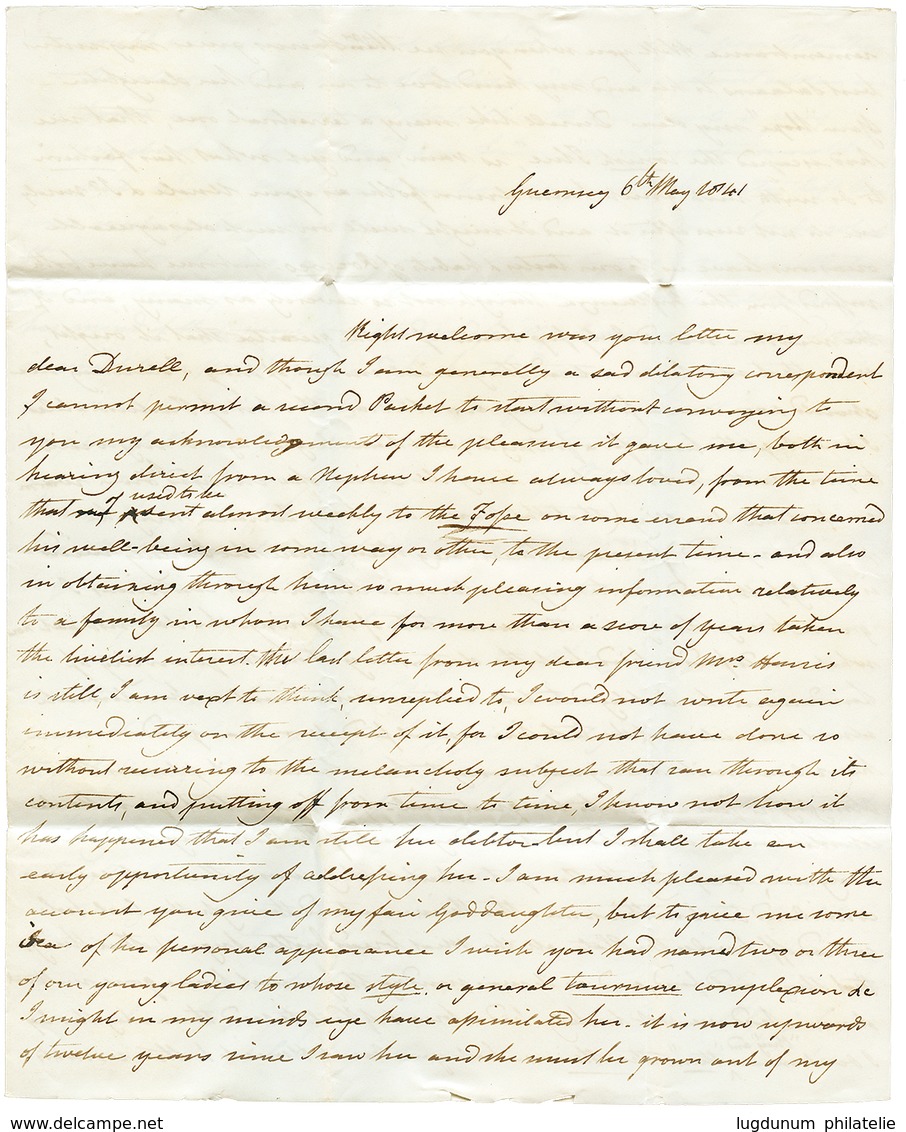 Guernsey 6th May 1841
Right welcome was your letter my
dear Durell, and though I am generally a sad dilatory correspondent
I cannot permit a second Packet to start without conveying to
you my acknowledgments of the pleasure it gave me, both in
hearing direct from a Nephew I have always loved, from the time
used to be
that I sent almost weekly to the Fope on some errand that concerned
his well-being in some way or other, to the present time - and also
in obtaining through him so much pleasing information relatively
to a family in whom I have for more than a score of years taken
the liveliest interest. The last letter from my dear friend Mrs Harris
is still, I am vext to think, unreplied to, I would not write again
immediately on the receipt of it, for I could not have done so
without recurring to the melancholy subject that ran through its
contents, and putting off from time to time, I know not how it
has happened that I am still her debtor but I shall take an
early opportunity of addressing her - I am much pleased with the
account you give of my fair Goddaughter, but to give me some
idea of her personal appearance I wish you had named two or three
of our young ladies to whose style, or general tournure complexion &c
I might in my minds eye have assimilated her - it is now upwards
of twelve years since I saw her and she must be grown out of my
delcampe.net
lugdunum philatelie